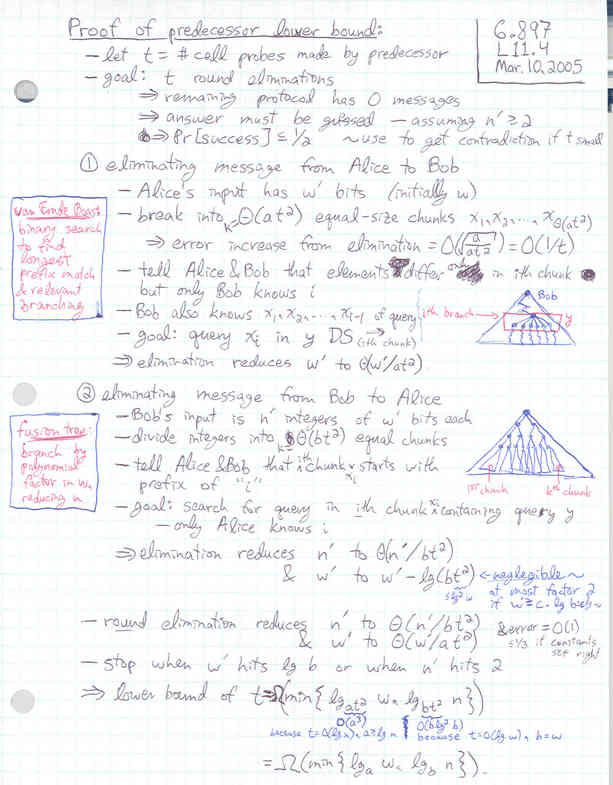 Proof of predecessor lower bound:
6.897
L11.4
Mar. 10, 2005
– let t = # cell probes made by predecessor
– goal: t round eliminations
⇒ remaining protocol has 0 messages
⇒ answer must be guessed – assuming n' ≥ 2
⇒ Pr[success] ≤ 1/2 ~ use to get contradiction if t small
① eliminating message from Alice to Bob
– Alice's input has w' bits (initially w)
– break into k = Θ(at²) equal-size chunks x₁, x₂, ..., x_Θ(at²)
⇒ error increase from elimination = O(√(a/at²)) = O(1/t)
– tell Alice & Bob that elements differ only in ith chunk
but only Bob knows i
– Bob also knows x₁, x₂, ..., x_{i-1} of query
– goal: query xᵢ in y DS (ith chunk)
⇒ elimination reduces w' to Θ(w'/at²)
van Emde Boas:
binary search
to find
longest
prefix match
& relevant
branching
Bob
ith branch
y
② eliminating message from Bob to Alice
– Bob's input is n' integers of w' bits each
– divide integers into k = Θ(bt²) equal chunks
– tell Alice & Bob that ith chunk xᵢ starts with
prefix of "i"
– goal: search for query in ith chunk xᵢ containing query y
– only Alice knows i
⇒ elimination reduces n' to Θ(n'/bt²)
& w' to w' – lg(bt²) ← neglegible ~
≤ lg² w
at most factor 2
fusion tree:
branch by
polynomial
factor in w,
reducing n
1st chunk
kth chunk
– round elimination reduces n' to Θ(n'/bt²)
& w' to Θ(w'/at²)
& error = O(1)
≤ 1/3 if constants
set right
– stop when w' hits lg b or when n' hits 2
⇒ lower bound of t = Ω(min{lg_{at²} w, lg_{bt²} n})
O(a³)
O(b lg² b)
because t = O(lg n),
because t = O(lg w), b ≥ w
= Ω(min{lg_a w, lg_b n}).